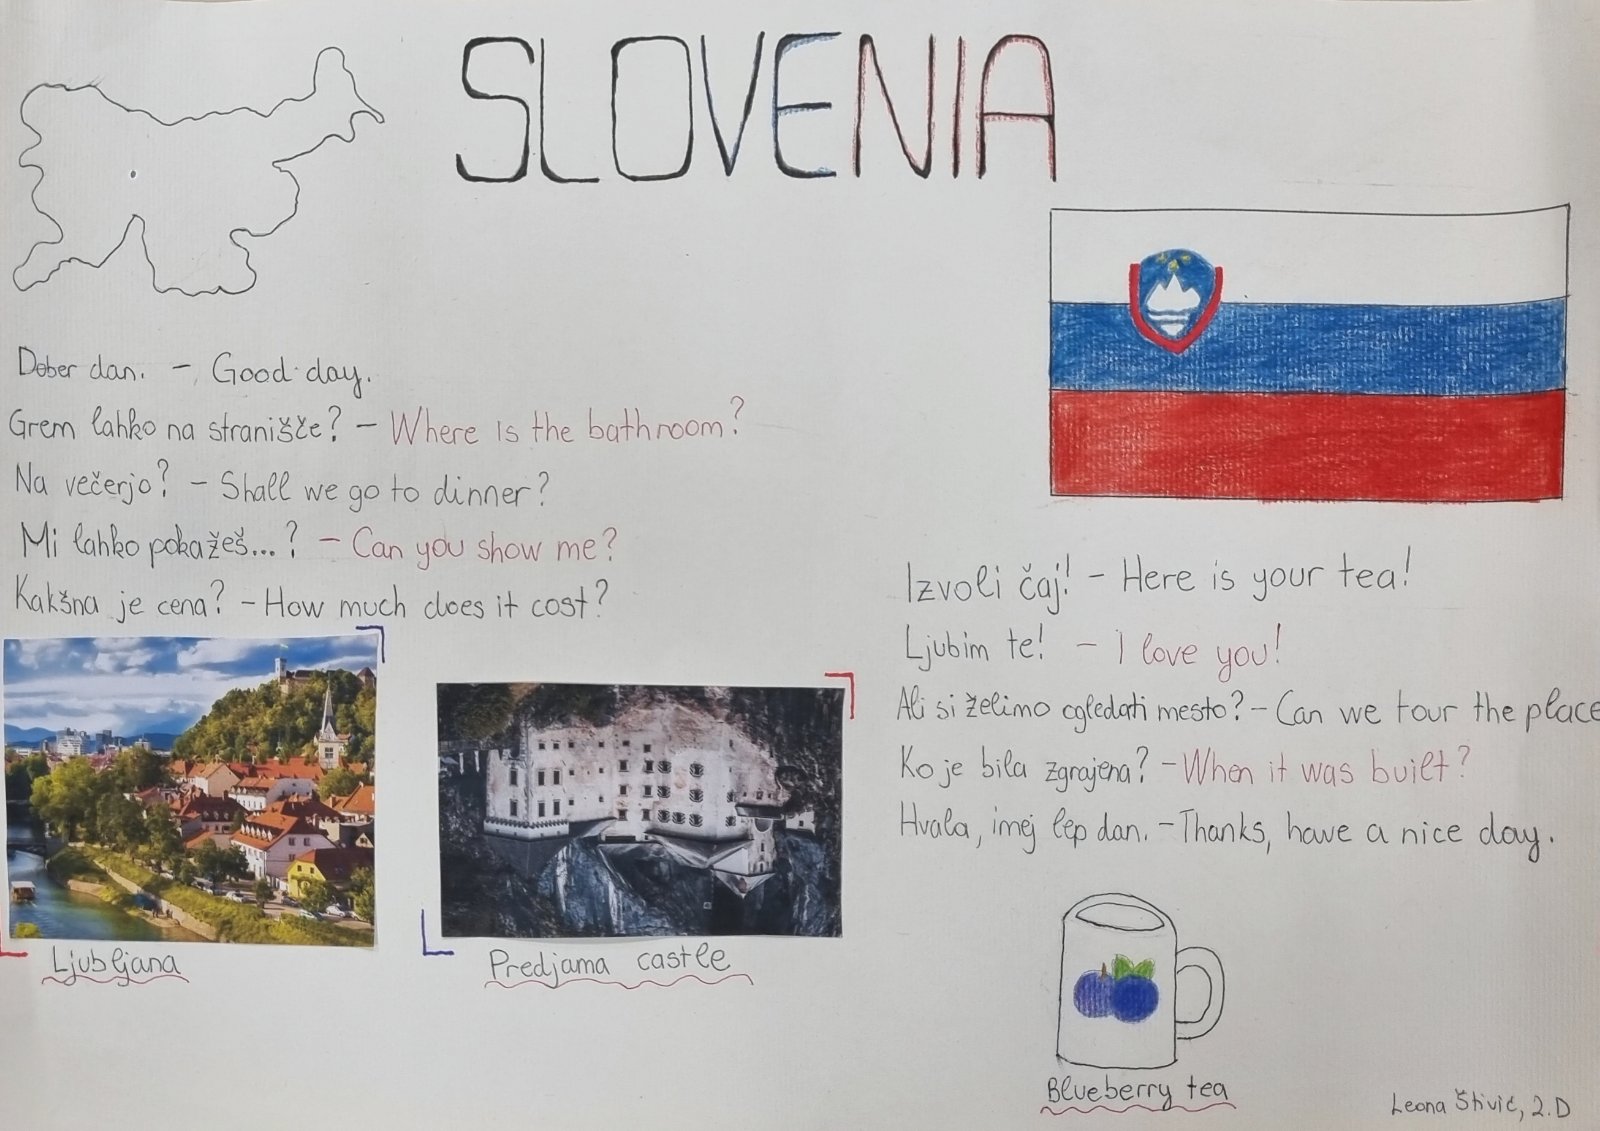 SLOVENIA
Dober dan. - Good day.
Grem lahko na stranišče? - Where is the bathroom?
Na večerjo? - Shall we go to dinner?
Mi lahko pokažeš...? - Can you show me?
Kakšna je cena? - How much does it cost?
Ljubljana
Predjama castle
Izvoli čaj! - Here is your tea!
Ljubim te! - I love you!
Ali si želimo ogledati mesto? - Can we tour the place
Ko je bila zgrajena? - When it was built?
Hvala, imej lep dan. - Thanks, have a nice day.
Blueberry tea
Leona Štivić, 2.D